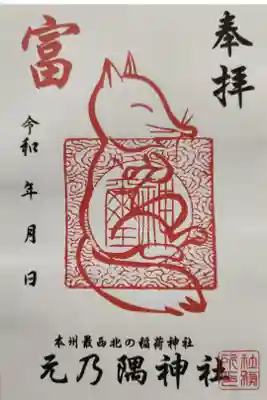 奉拝
富
令和 年 月 日
本州最西北の稲荷神社
元乃隅神社